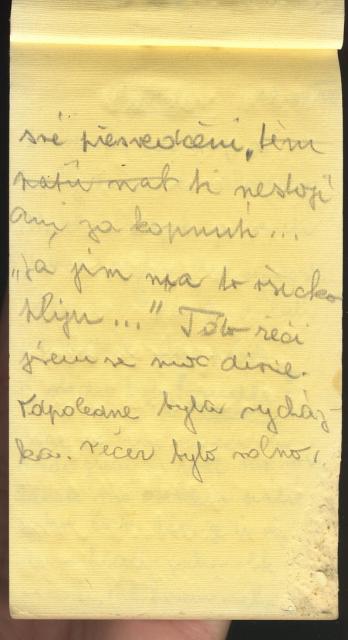 své přesvedčení, „těm
ti nestojí
ani za kopnuti...
„Já jim na to všecko
pliju...” Této řeči
jsem se moc divil.
Odpoledne byla vycház-
ka. Večer bylo volno,